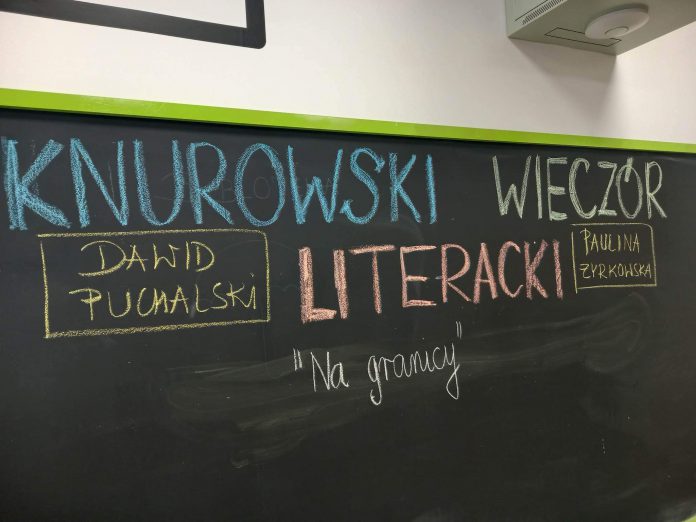 KNUROWSKI WIECZÓR
LITERACKI
DAWID
PUCHALSKI
PAULINA
ŻYRKOWSKA
"Na granicy"